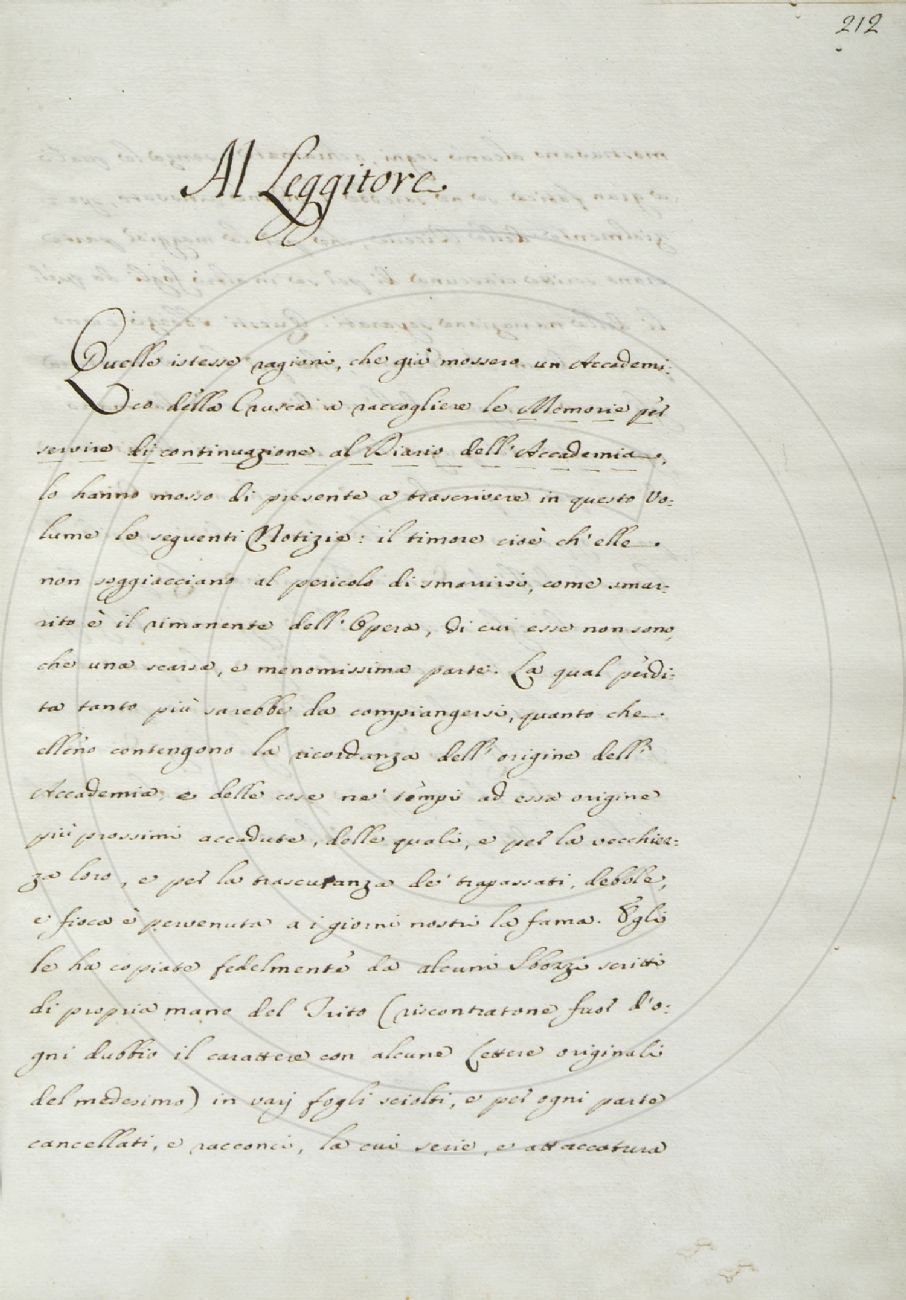 212
Al Leggitore.
Quelle istesse ragioni, che già mossero un Accademi:
co della Crusca a raccogliere le Memorie per
servire di continuazione al Diario dell'Accademia,
lo hanno mosso di presente a trascrivere in questo Vo:
lume le seguenti Notizie: il timore cioè ch'elle
non soggiacciano al pericolo di smarirsi, come smar:
rito è il rimanente dell'Opera, di cui esse non sono,
che una scarsa, e menomissima parte. La qual pèrdi:
ta tanto più sarebbe da compiangersi, quanto che
ellèno contengono la ricordanza dell'origine dell'
Accademia, e delle cose ne' tèmpi ad essa origine
più prossimi accadute, delle quali, e per la vecchiez:
za loro, e per la trascuranza de' trapassati, debole,
e fioca è pervenuta a i giorni nostri la fama. Egli
le ha copiate fedelmente da alcuni Sbozzi scritti
di propria mano del Trito (riscontratone fuor d'o:
gni dubbio il carattere con alcune Lettere originali
del medesimo) in varj fogli sciolti, e per ogni parte
cancellati, e racconci, la cui serie, e attaccatura